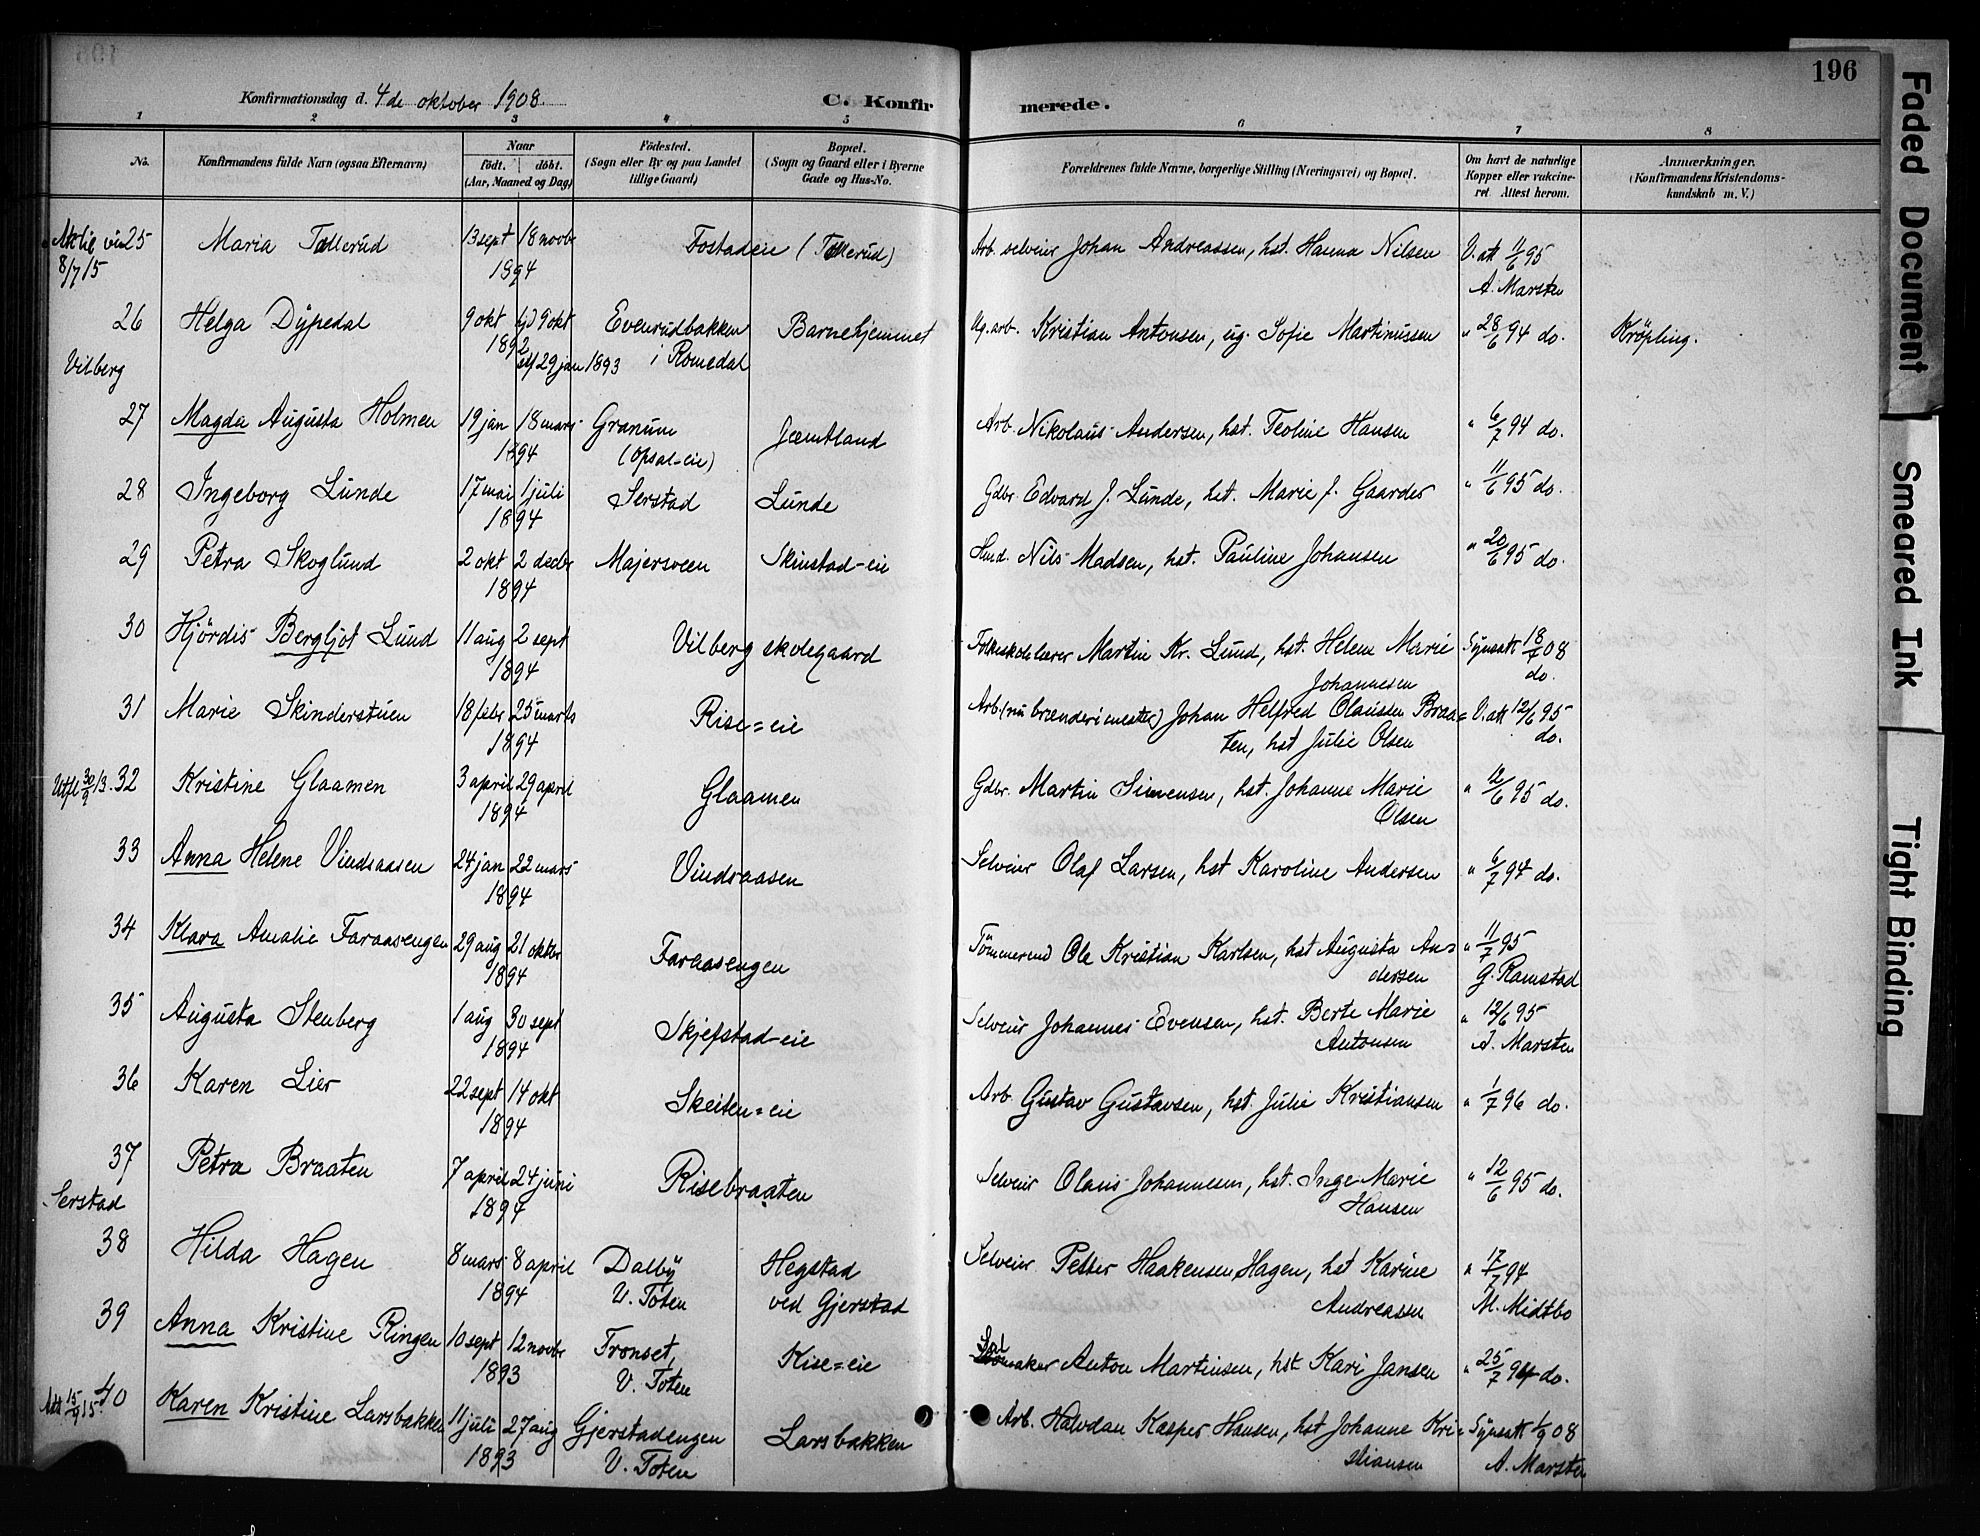 196
Konfirmationsdag d. 4de oktober 1908.
C. Konfirmerede.
1 2 3 4 5 6 7 8
No.
Konfirmandens fulde Navn (ogsaa Efternavn)
Naar
födt. döbt.
(Aar, Maaned og Dag)
Födested.
(Sogn eller By og paa Landet
tillige Gaard)
Bopæl.
(Sogn og Gaard eller i Byerne
Gade og Hus-No.
Forældrenes fulde Navne, borgerlige Stilling (Næringsvei) og Bopæl.
Om havt de naturlige
Kopper eller vakcine-
ret. Attest herom.
Anmærkninger.
(Konfirmandens Kristendoms-
kundskab m. V.)
25 Maria Tollerud 13 sept 18 novbr Fostadeie (Tollerud) Arb. selveier Johan Andreassen, hst. Hanna Nilsen V. att 11/6 95
8/7 15 1894 A. Marsten
26 Helga Dypedal 9 okt hjd 9 okt Evenrudbakken Barnehjemmet Ug. arb. Kristian Antonsen, ug. Sofie Martinussen " 28/6 94 do. Kröpling.
1892
Vilberg 29 jan 1893 i Romedal
27 Magda Augusta Holmen 19 jan 18 mars Granum Jæmtland Arb. Nikolaus Andersen, hst. Teoline Hansen " 6/7 94 do.
1894 (Opsal-eie)
28 Ingeborg Lunde 17 mai 1 juli Serstad Lunde Gdbr. Edvard J. Lunde, hst. Marie J. Gaarder " 11/6 95 do.
1894
29 Petra Skoglund 2 okt 2 decbr Majersveen Skinstad-eie Hmd. Nils Madsen, hst. Pauline Johansen " 20/6 95 do.
1894
30 Hjördis Bergljot Lund 11 aug 2 sept Vilberg skolegaard Folkeskolelærer Martin Kr. Lund, hst. Helene Marie Synsatt 18/7 08
1894 Johannesen do.
31 Marie Skinderstuen 18 febr 25 marts Rise=eie Arb. (nu brænderimester) Johan Helfred Olaussen Braa= V. att 12/6 95
1894 ten, hst Julie Olsen do.
Utfl 30/9 13. 32 Kristine Glaamen 3 april 29 april Glaamen Gdbr. Martin Simensen, hst. Johanne Marie " 12/6 95 do.
1894 Olsen
33 Anna Helene Vindsaasen 24 jan 22 mars Vindsaasen Selveier Olaf Larsen, hst Karoline Andersen " 6/7 94 do.
1894
34 Klara Amalie Faraasengen 29 aug 21 oktbr Faraasengen Tömmermd Ole Kristian Karlsen, hst Augusta An= " 11/7 95
1894 dersen G. Ramstad
35 Augusta Stenberg 1 aug 30 sept Skjefstad-eie Selveier Johannes Evensen, hst. Berte Marie " 12/6 95
1894 Antonsen A. Marsten
36 Karen Lier 22 sept 14 okt Skeiten=eie Arb. Gustav Gustavsen, hst. Julie Kristiansen " 1/7 96 do.
1894
37 Petra Braaten 7 april 24 juni Risebraaten Selveier Olaus Johannesen, hst. Inge Marie " 12/6 95 do.
Serstad 1894 Hansen
38 Hilda Hagen 8 mars 8 april Dalby Hegstad Selveier Petter Haakensen Hagen, hst Karine " 17/7 94
1894 V. Toten ved Gjerstad Andreassen M. Midtbo
39 Anna Kristine Ringen 10 sept 12 novbr Tronset Rise=eie Salmaker Anton Martinsen, hst Kari Jansen " 25/7 94 do.
1893 V. Toten
Att 15/9 15. 40 Karen Kristine Larsbakken 11 juli 27 aug Gjerstadengen Larsbakken Arb. Halvdan Kasper Hansen, hst Johanne Kri= Synsatt 1/9 08
1893 V. Toten stiansen A. Marsten
Faded Document
Smeared Ink
Tight Binding